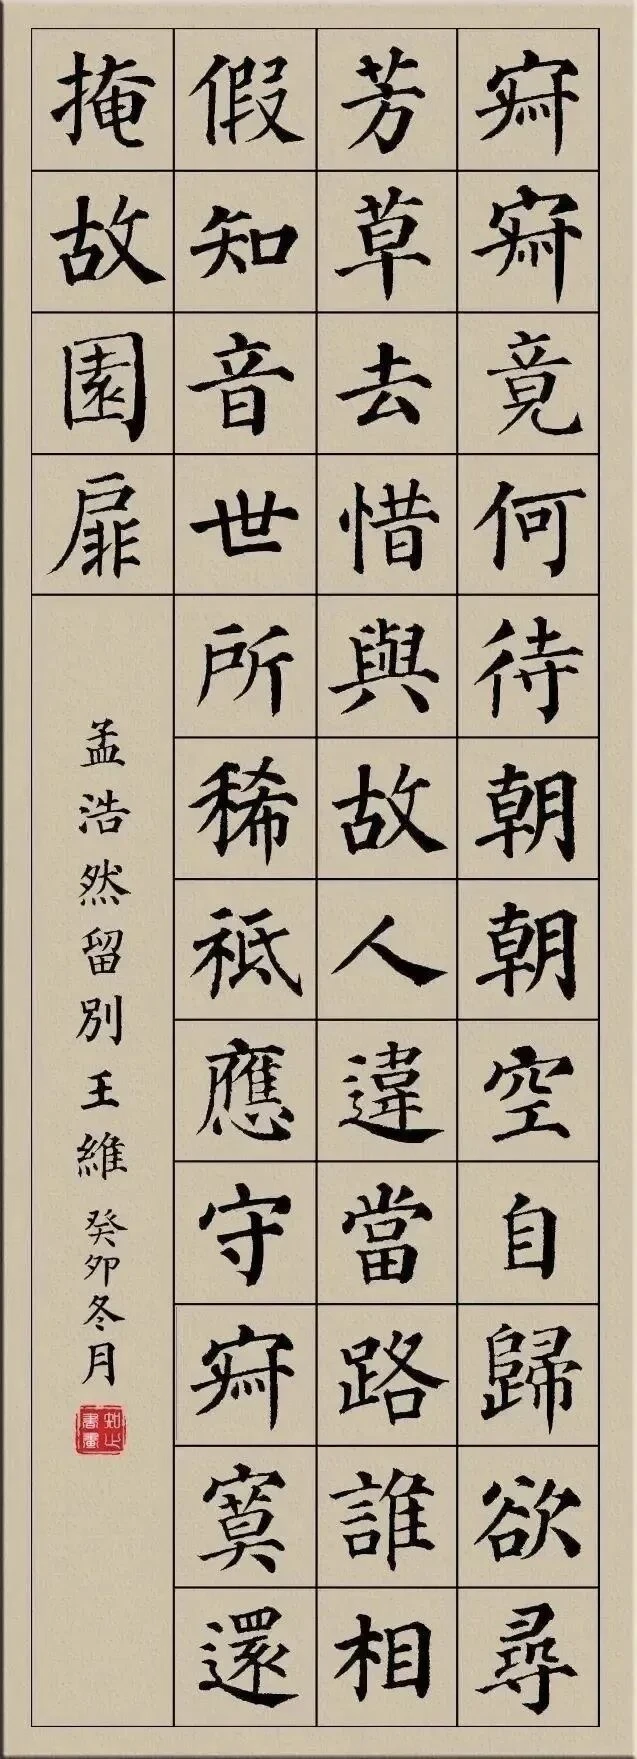 寂寂竟何待朝朝空自歸欲尋
芳草去惜與故人違當路誰相
假知音世所稀祗應守寂寞還
掩故園扉
孟浩然留別王維 癸卯冬月
書畫